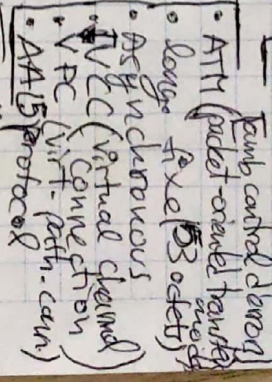 control
• ATM (packet-oriented transfer mode)
• long fixed (53 octets)
• Asynchronous
• VCC (virtual channel connection)
• VPC (virt-path-conn.)
• AAL5 protocol